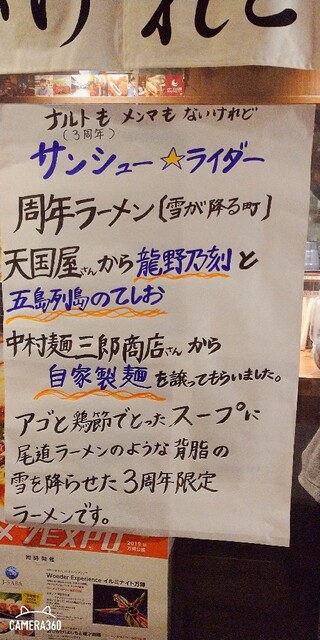 けれど
ナルトも メンマも ないけれど
(3周年)
サンシュー☆ライダー
周年ラーメン[雪が降る町]
天国屋さんから龍野乃刻と
五島列島のてしお
中村麺三郎商店さんから
自家製麺を譲ってもらいました。
アゴと鶏節でとったスープに
尾道ラーメンのような背脂の
雪を降らせた3周年限定
ラーメンです。
EXPO
2019
同時開催
Wonder Experience イルミナイト万博
CAMERA360